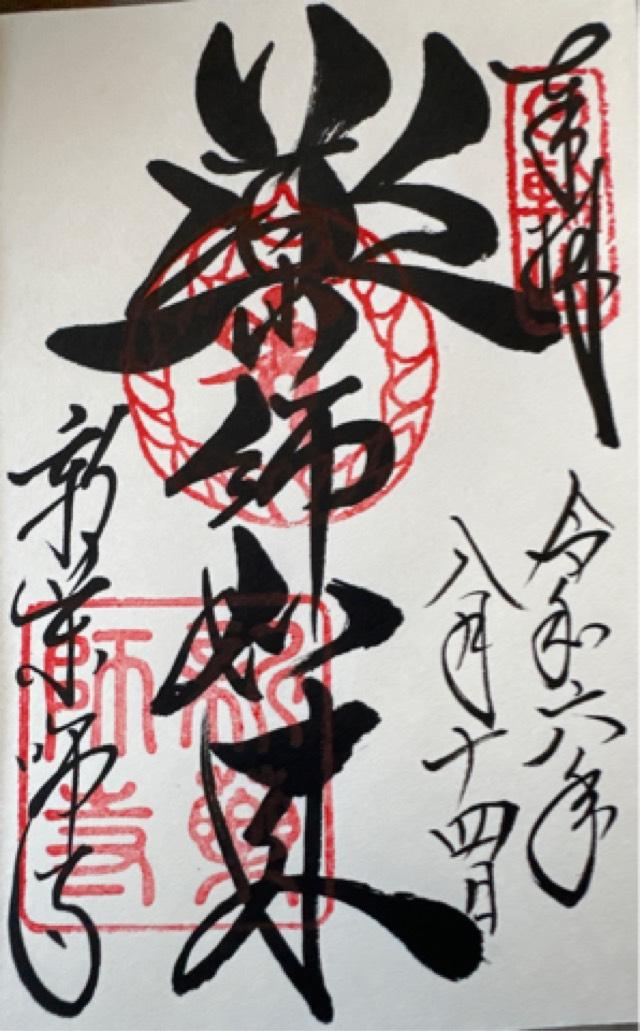 奉拝
令和六年
八月十四日
薬師如来
新薬師寺
新薬師寺